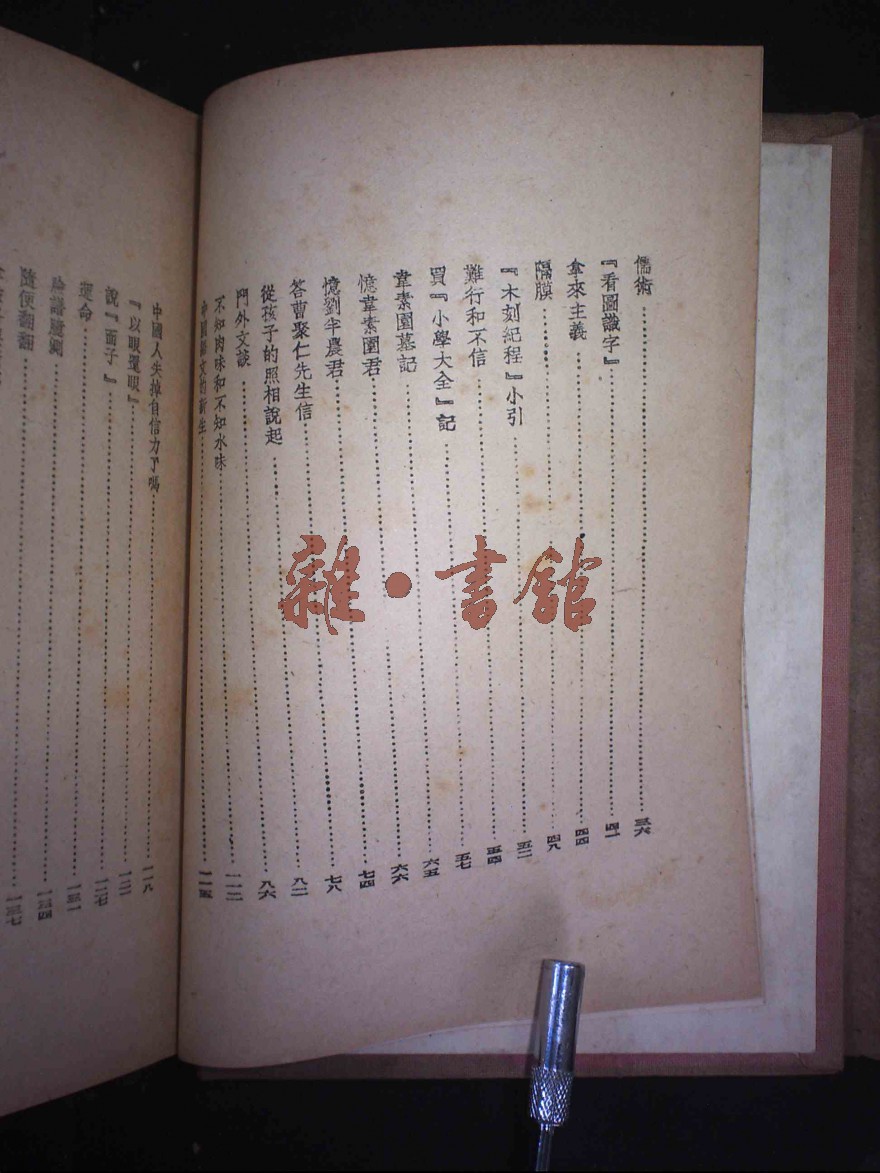 儒術…………三六
『看圖識字』…………四一
拿來主義…………四四
隔膜…………四八
『木刻紀程』小引…………五二
難行和不信…………五四
買『小學大全』記…………五七
韋素園墓記…………六五
憶韋素園君…………六六
憶劉半農君…………七四
答曹聚仁先生信…………七八
從孩子的照相說起…………八二
門外文談…………八六
不知肉味和不知水味…………一一二
中國語文的新生…………一一五
中國人失掉自信力了嗎…………一一八
『以眼還眼』…………一二一
說『面子』…………一二七
運命…………一三一
臉譜臆測…………一三四
隨便翻翻…………一三七
雜·書館